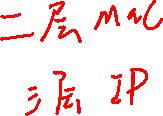 二层 MaC
三层 IP